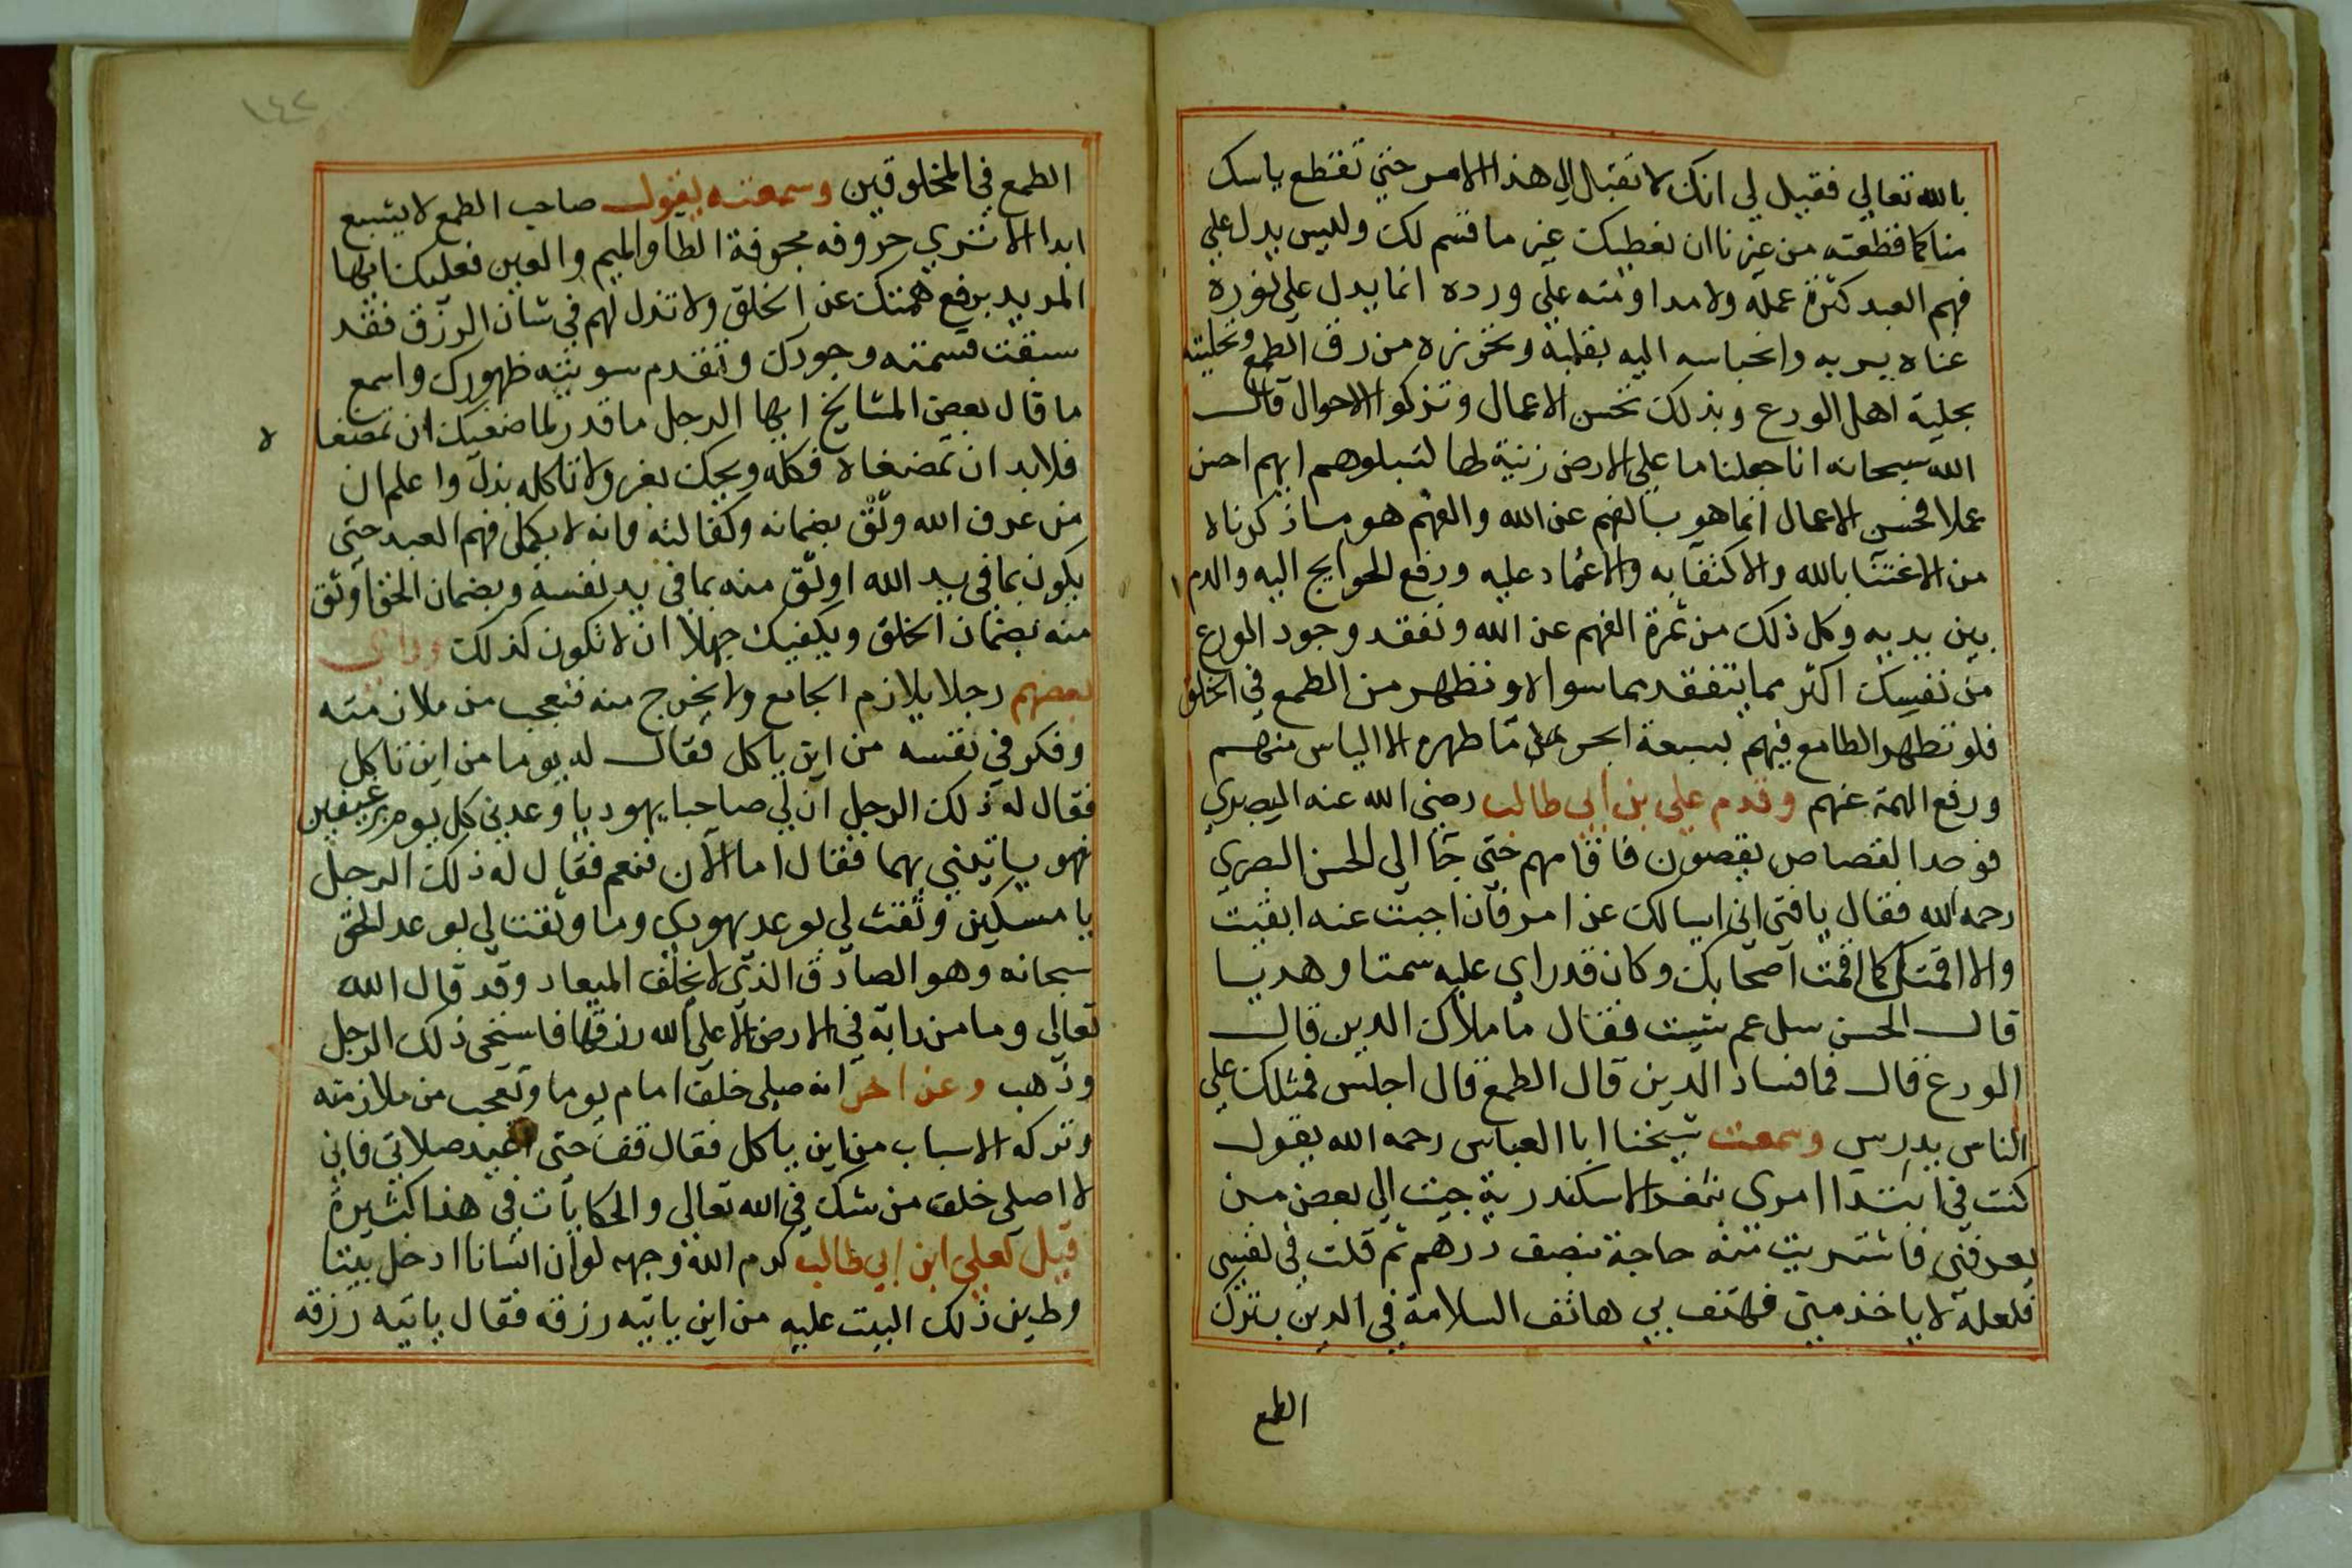 بالله تعالى فقيل لي انك لا تقبل الى هذا الامر حتى تقطع ياسك
منا كما قطعته من غيرنا ان نعطيك غير ما قسم لك وليس يدل على
فهم العبد كثرة عمله ولا مداومته على ورده انما يدل على نوره
غناه بربه وانحباسه اليه بقلبه وتحرزه من رق الطمع وتحليته
بحلية اهل الورع وبذلك تحسن الاعمال وتزكوا الاحوال قال
الله سبحانه انا جعلنا ما على الارض زينة لها لنبلوهم ايهم احسن
عملا فحسن الاعمال انما هو بالفهم عن الله والفهم هو ما ذكرناه
من الاغتنا بالله والاكتفا به والاعتماد عليه ورفع الحوايج اليه والدم
بين يديه وكل ذلك من ثمرة الفهم عن الله وتفقد وجود الورع
من نفسك اكثر مما تتفقد مما سواه وتطهر من الطمع في الخلق
فلو تطهر الطامع فيهم بسبعة ابحر ما طهره الا الياس منهم
ورفع الهمة عنهم وقدم علي بن ابي طالب رضي الله عنه البصري
فوجد القصاص يقصون فاقامهم حتى جا الى الحسن البصري
رحمه الله فقال يا فتى اني اسالك عن امر فان اجبت عنه ابقيت
والا اقمتك كما اقمت اصحابك وكان قد راى عليه سمتا وهديا
قال الحسن سل عم شيت فقال ما ملاك الدين قال
الورع قال فما فساد الدين قال الطمع قال اجلس فمثلك على
الناس يدرس وسمعت شيخنا ابا العباس رحمه الله يقول
كنت في ابتدا امري بثغر الاسكندرية جيت الى بعض من
يعرفني فاشتريت منه حاجة بنصف درهم ثم قلت في نفسي
فلعله لا ياخذ مني فهتف بي هاتف السلامة في الدين بترك
الطمع
١٤٢
الطمع في المخلوقين وسمعته يقول صاحب الطمع لا يشبع
ابدا الا ترى حروفه مجوفة الطا والميم والعين فعليك ايها
المريد برفع همتك عن الخلق ولا تذل لهم في شان الرزق فقد
سبقت قسمته وجودك وتقدم سوبثه ظهورك واسمع
ما قال بعض المشايخ ايها الرجل ما قدر لماضغيك ان تمضغا ه
فلا بد ان تمضغاه فكله ويحك بعز ولا تاكله بذل واعلم ان
من عرف الله وثق بضمانه وكفالته وانه لا يكمل فهم العبد حتى
يكون بما في يد الله اوثق منه بما في يد نفسه وبضمان الحق اوثق
منه بضمان الخلق ويكفيك جهلا ان لا تكون كذلك وراى
بعضهم رجلا يلازم الجامع ولا يخرج منه فتعجب من ملازمته
وفكر في نفسه من اين ياكل فقال له يوما من اين تاكل
فقال له ذلك الرجل ان لي صاحبا يهوديا وعدني كل يوم برغيفين
فهو ياتيني بهما فقال اما الان فنعم فقال له ذلك الرجل
يا مسكين وثقت لي بوعد يهودي وما وثقت لي بوعد الحق
سبحانه وهو الصادق الذي لا يخلف الميعاد وقد قال الله
تعالى وما من دابة في الارض الا على الله رزقها فاستحى ذلك الرجل
وذهب وعن اخر انه صلى خلف امام يوما وتعجب من ملازمته
وتركه الاسباب من اين ياكل فقال قف حتى اعيد صلاتي فاني
لا اصلي خلف من شك في الله تعالى والحكايات في هذا كثيرة
قيل لعلي ابن ابي طالب كرم الله وجهه لو ان انسانا ادخل بيتا
وطين ذلك البيت عليه من اين ياتيه رزقه فقال ياتيه رزقه